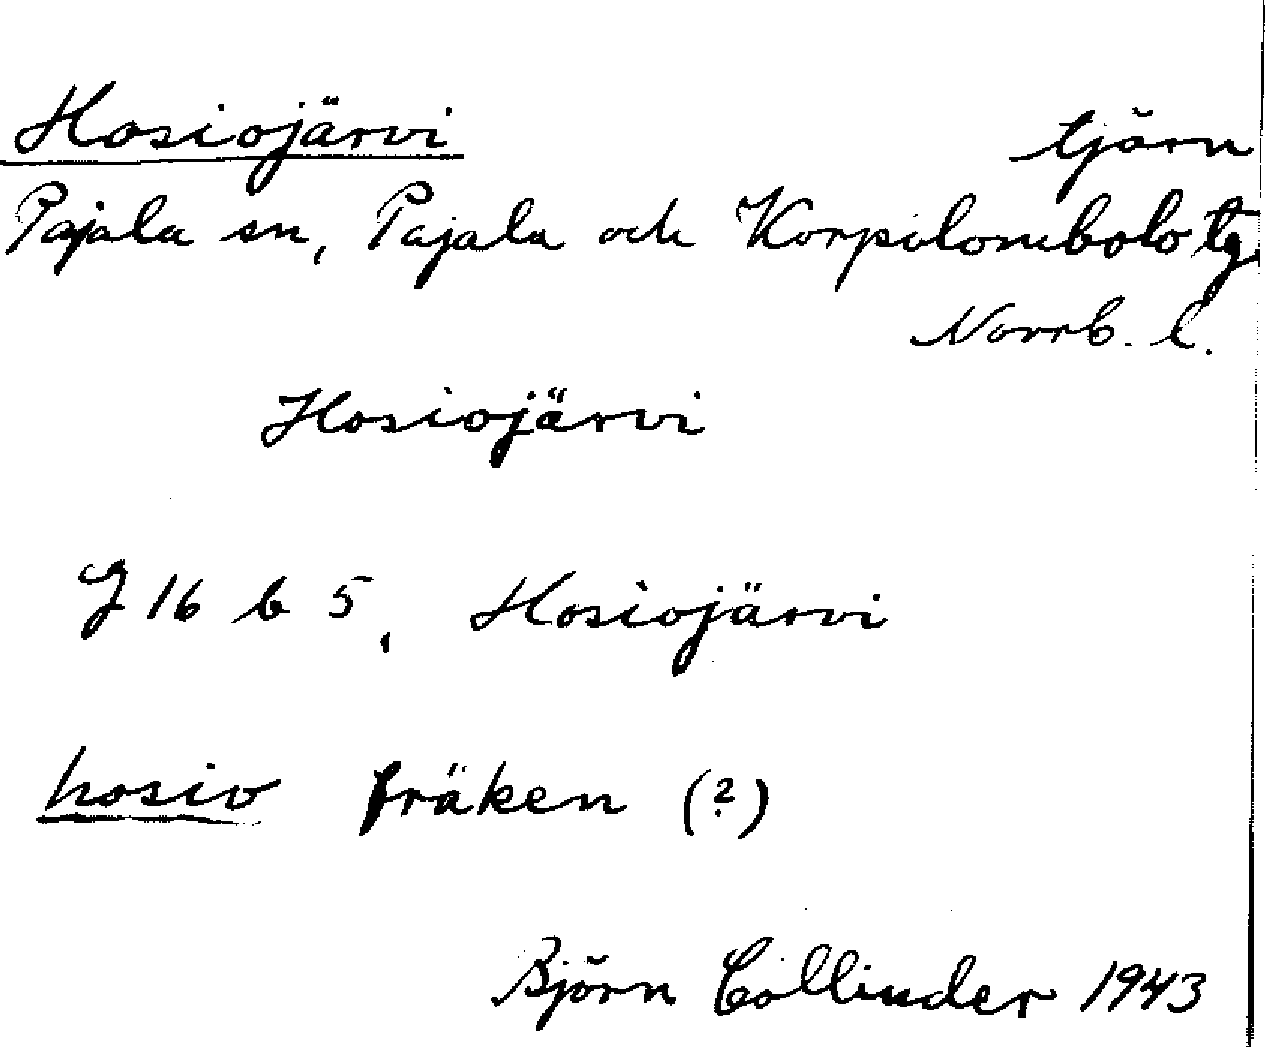 Hosiojärvi tjärn
Pajala sn, Pajala och Korpilombolo tg.
Norrb. l.
Hosiojärvi
J 16 b 5, Hosiojärvi
hosio fräken (?)
Björn Collinder 1943